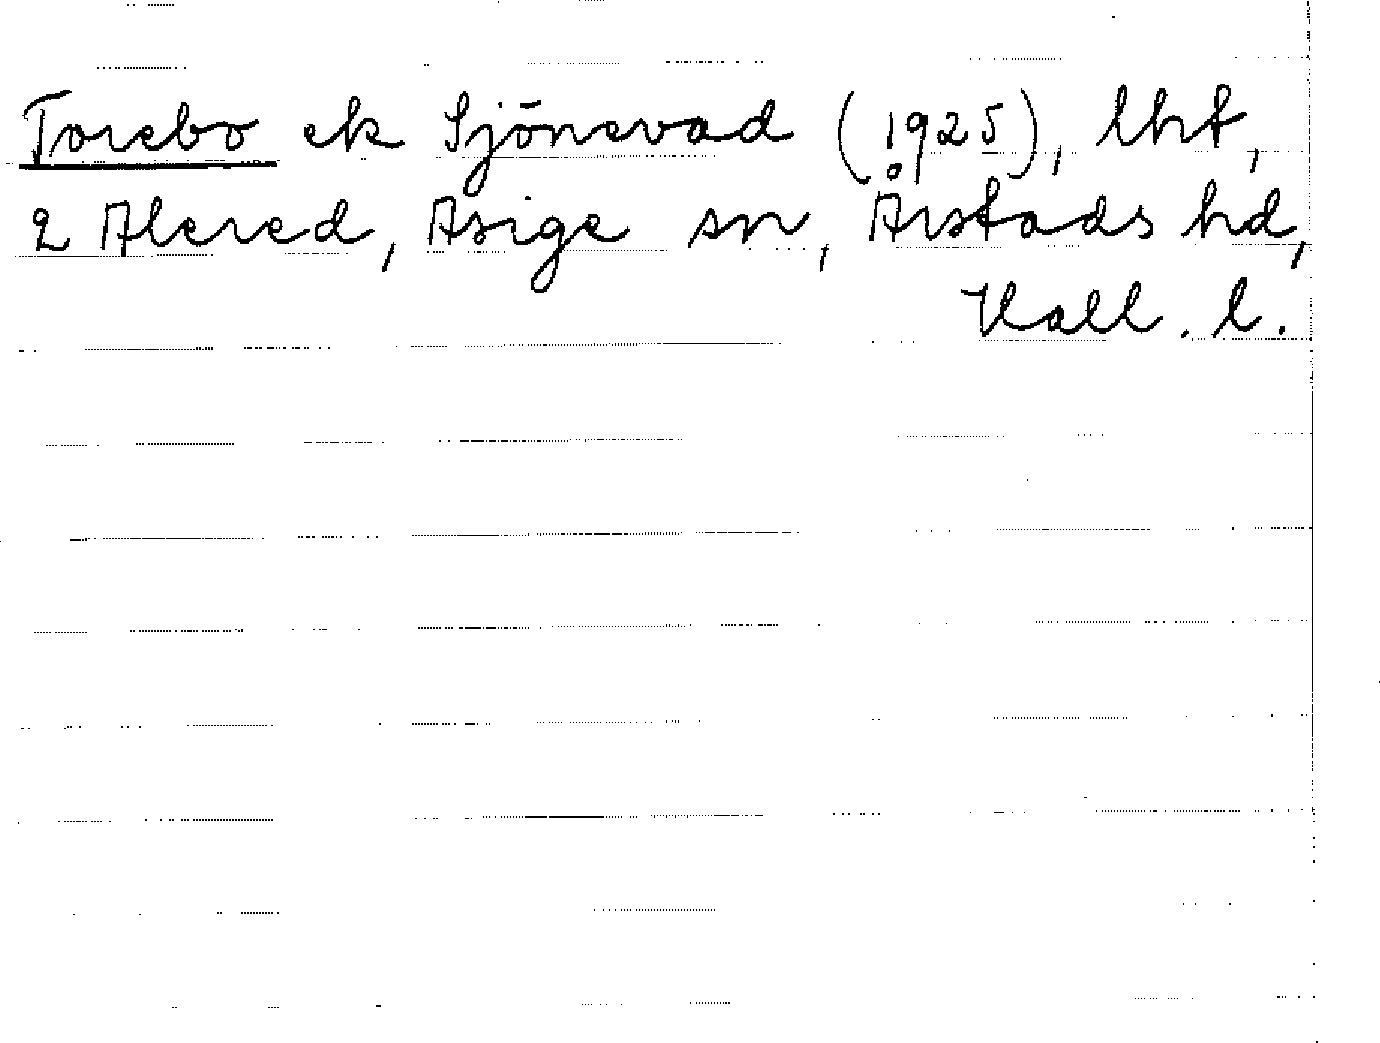 Torebo ek Sjönevad (1925), lht,
2 Alered, Asige sn, Årstads hd,
Hall. l.